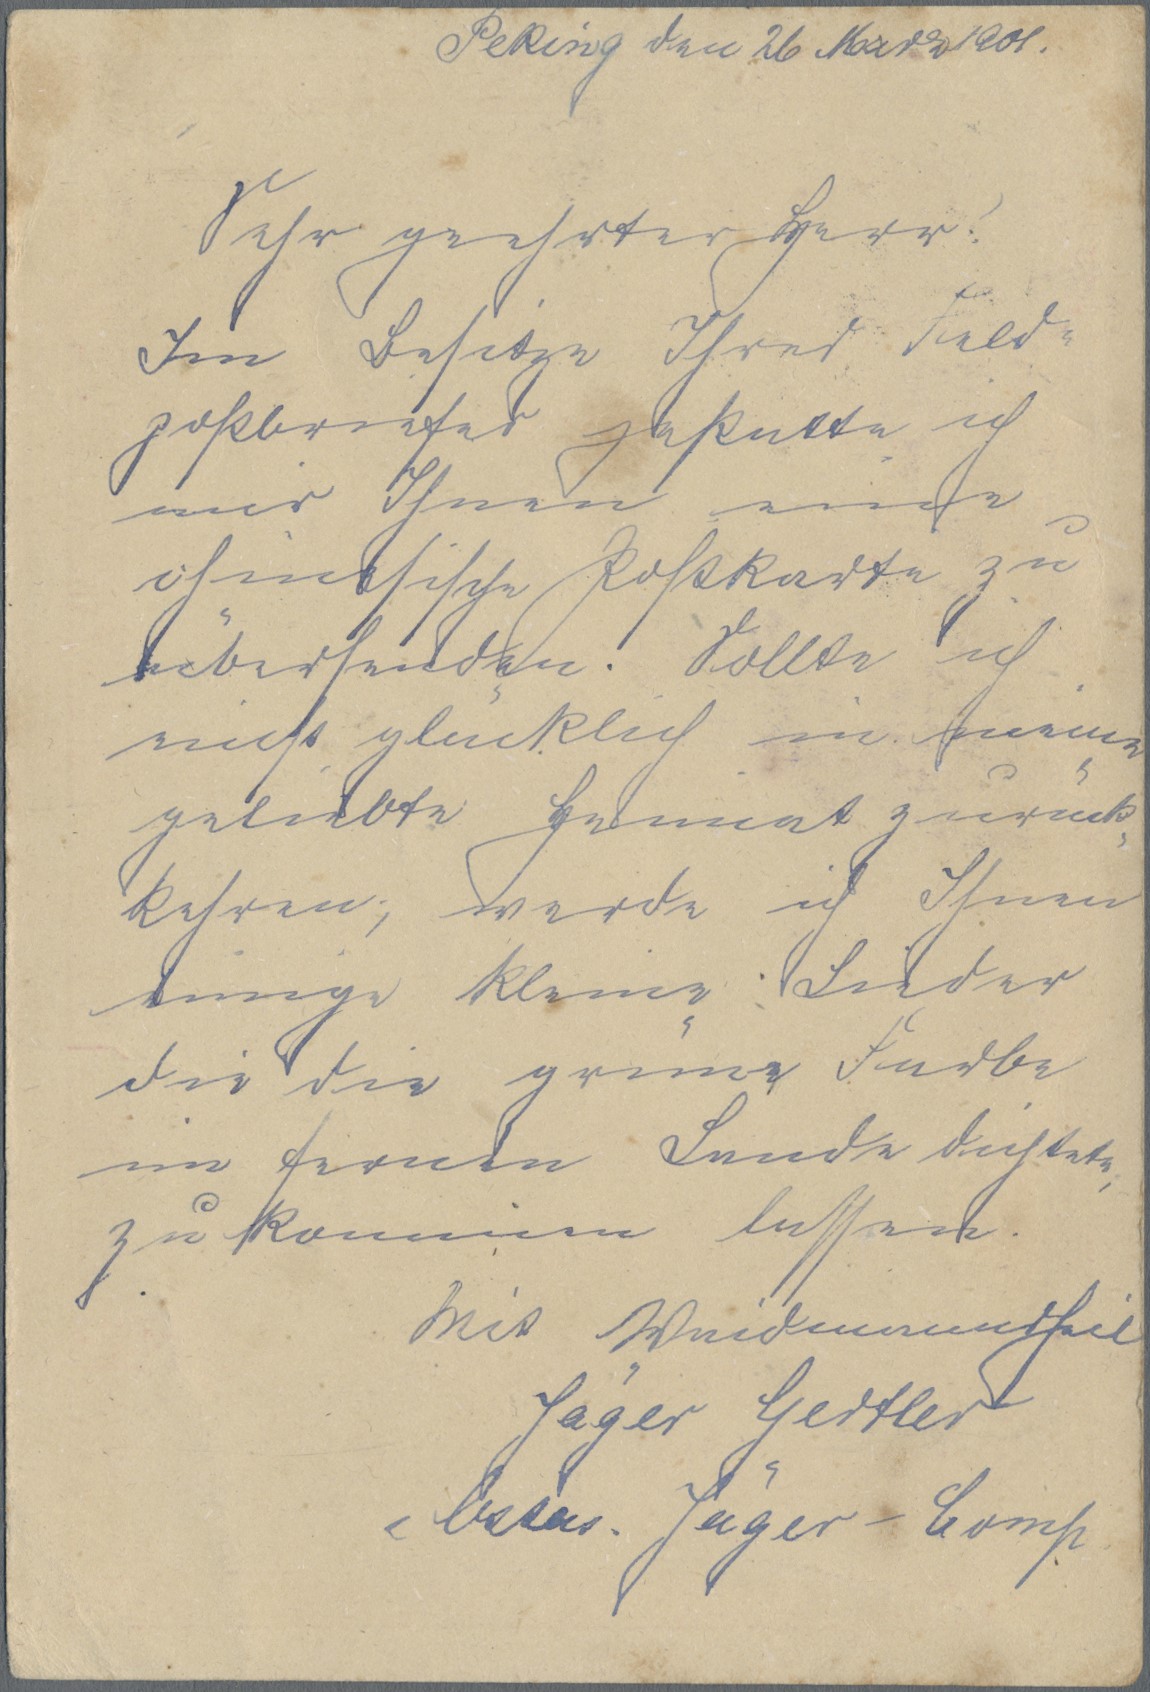 Peking den 26 März 1901.
Sehr geehrter Herr!
Im Besitze Ihres Feld-
postbriefes gestatte ich
mir Ihnen eine
chinesische Postkarte zu
übersenden. Sollte ich
nicht glücklich in meine
geliebte Heimat zurück-
kehren, werde ich Ihnen
einige kleine Lieder
die die grüne Farbe
im fernen Lande dichtete,
zu kommen lassen.
Mit Waidmannsheil
Jäger
Ostas. Jäger-Comp